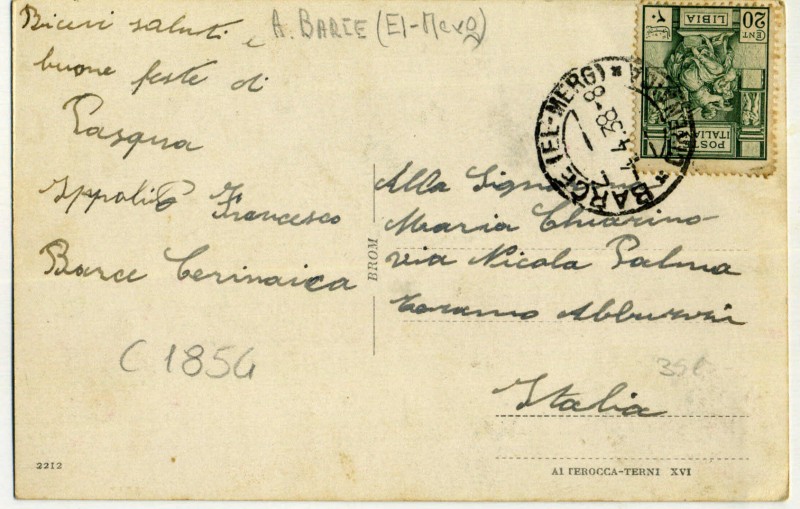 Ricevi saluti e
buone feste di
Pasqua
Ippolito Francesco
Barce Cerinaica
A. BARCE (El-Merg)
C 1854
2212
BROM
20
CENT
LIBIA
POSTE
ITALIANE
BARCE (EL-MERG)
* CIRENAICA *
4.38
8
Alla Signorina
Maria Chiarino
via Nicola Palma
Teramo Abbruzzi
Italia
ALTEROCCA-TERNI XVI